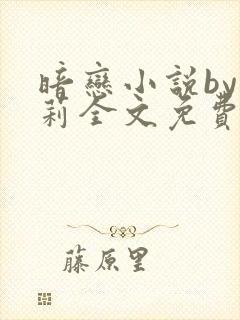 暗戀小說by
莉全文免費
藤原里